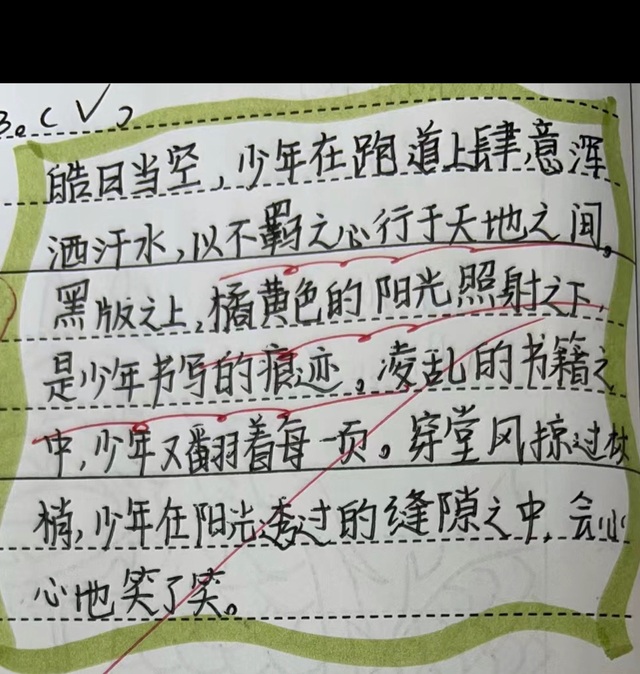 B。C√。
皓日当空，少年在跑道上肆意浑
洒汗水，以不羁之心行于天地之间。
黑版之上，橘黄色的阳光照射之下，
是少年书写的痕迹。凌乱的书籍之
中，少年又翻着每一页。穿堂风掠过树
梢，少年在阳光透过的缝隙之中，会心
心地笑了笑。